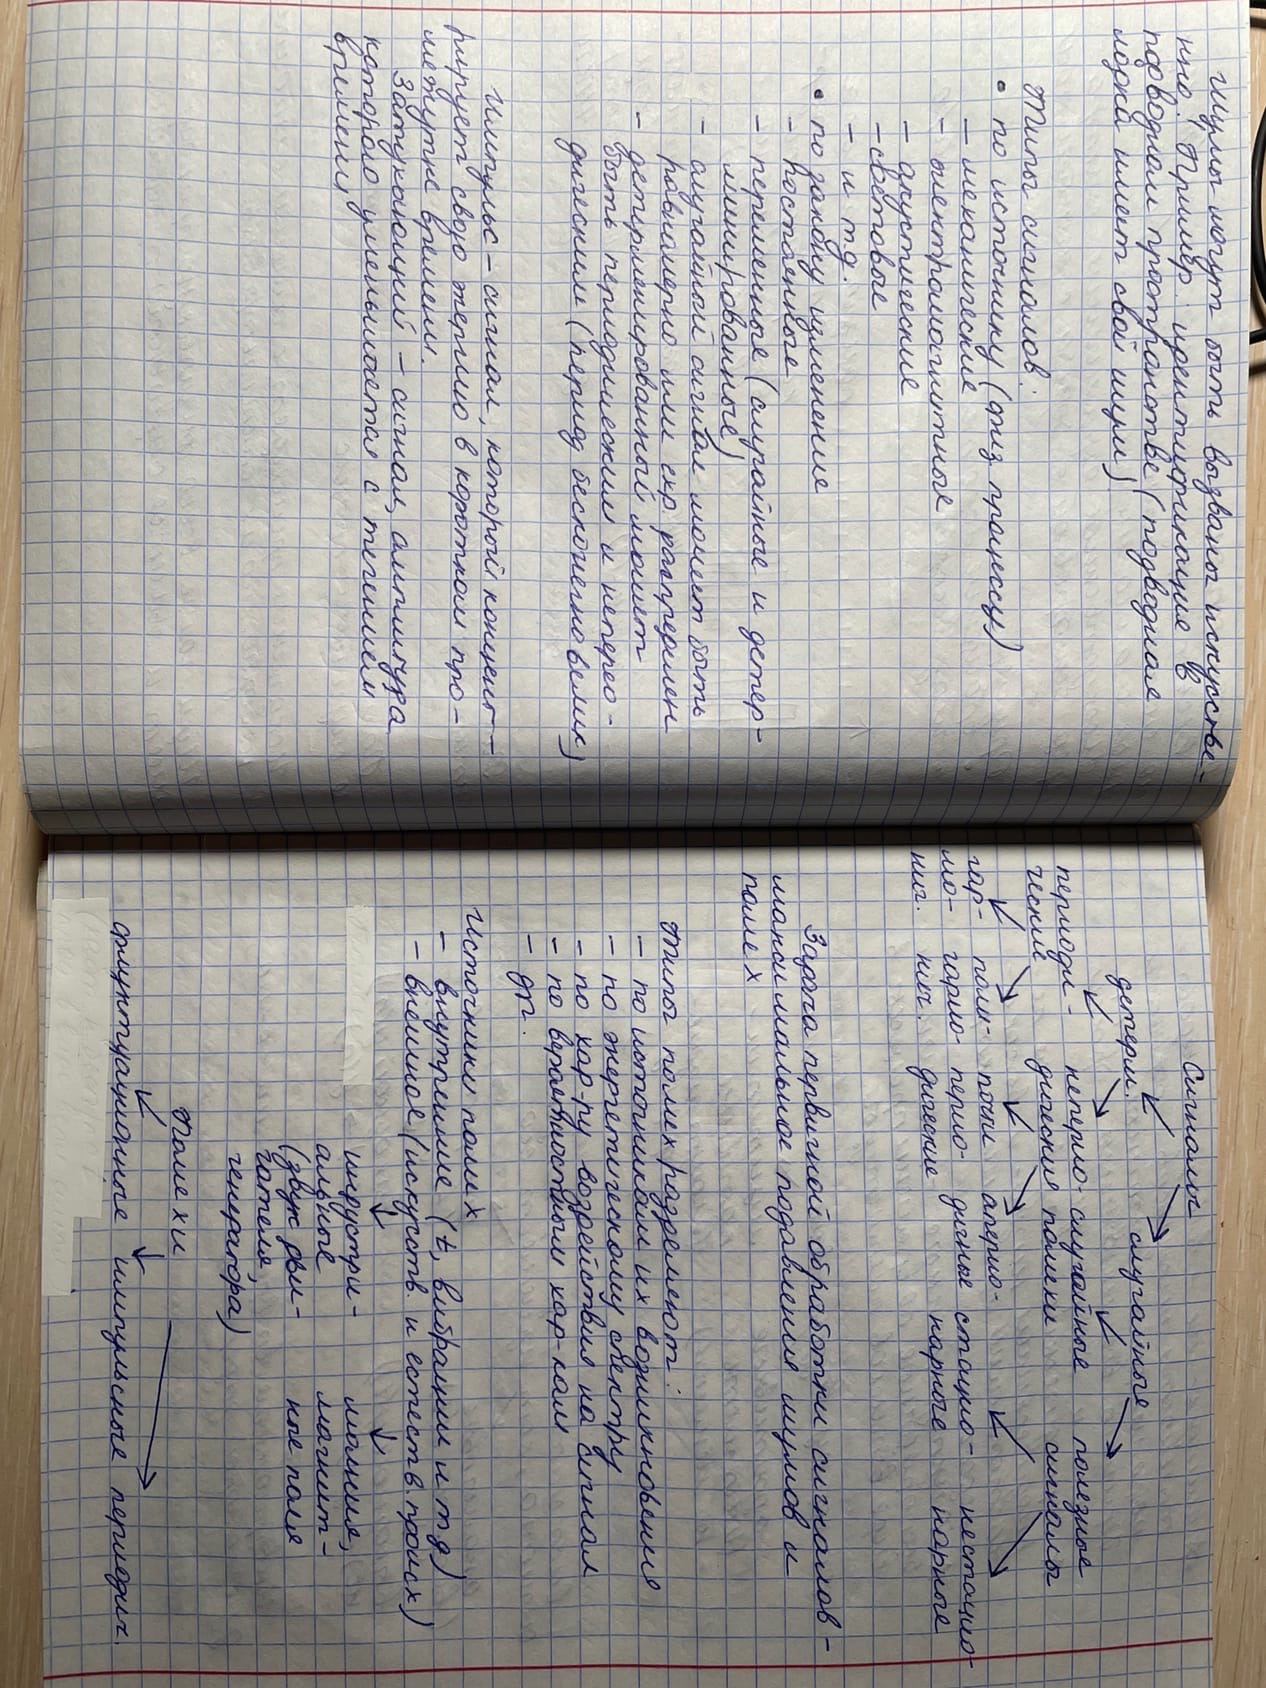 Шумы могут быть вызваны искусстве-
нно! Пример: идентификация в
подводном пространстве (подводная
лодка имеет свой шум)
Типы сигналов:
• по источнику (физ. процессу)
– механические
– электромагнитные
– акустические
– световые
– и т.д.
• по закону изменения
– постоянные
– переменные (случайные и детер-
минированные)
– случайный сигнал может быть
равномерно или экр. распределен
– детерменированный может
быть периодическим и неперео-
дическим (период бесконечно велик)
Импульс – сигнал, который концент-
рирует свою энергию в коротком про-
межутке времени.
Затухающий – сигнал, амплитуда
которого уменьшается с течением
времени
Сигналы
детерм. случайные
периоди- неперио- случайные полезные
ческие дические помехи сигналы
гар- поли- почти аперио-
мо- гармо- перио- дичные стацио- нестацио-
нич. нич. дические нарные нарные
Задача первичной обработки сигналов –
максимальное подавления шумов и
помех
Типы помех разделяют:
– по источникам их возникновения
– по энергетическому спектру
– по хар-ру воздействия на сигнал
– по вероятностным хар-кам
– др.
Источники помех
– внутренние (t, вибрации и т.д)
– внешное (искусств. и естеств. происх)
индустри- молния,
альные магнит-
(звук дви- ные поля
гателя,
генератора)
Помехи
флуктуационные импульсные периодич.